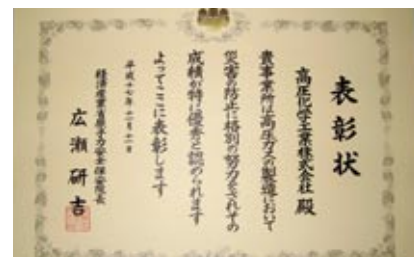 表彰状
高圧化学工業株式会社 殿
貴事業所は高圧ガスの製造において
災害の防止に格別の努力をされその
成績が特に優秀と認められます
よってここに表彰します
平成十七年十一月十一日
経済産業省原子力安全・保安院長
広瀬研吉